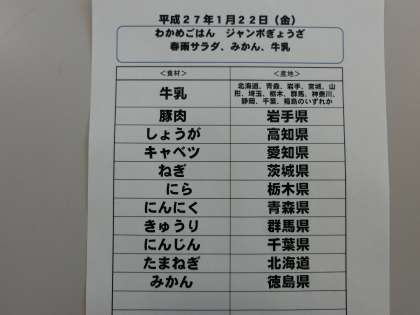 平成27年1月22日（金）
わかめごはん　ジャンボぎょうざ
春雨サラダ、みかん、牛乳
＜食材＞　＜産地＞
牛乳　北海道、青森、岩手、宮城、山
形、埼玉、栃木、群馬、神奈川、
静岡、千葉、福島のいずれか
豚肉　岩手県
しょうが　高知県
キャベツ　愛知県
ねぎ　茨城県
にら　栃木県
にんにく　青森県
きゅうり　群馬県
にんじん　千葉県
たまねぎ　北海道
みかん　徳島県